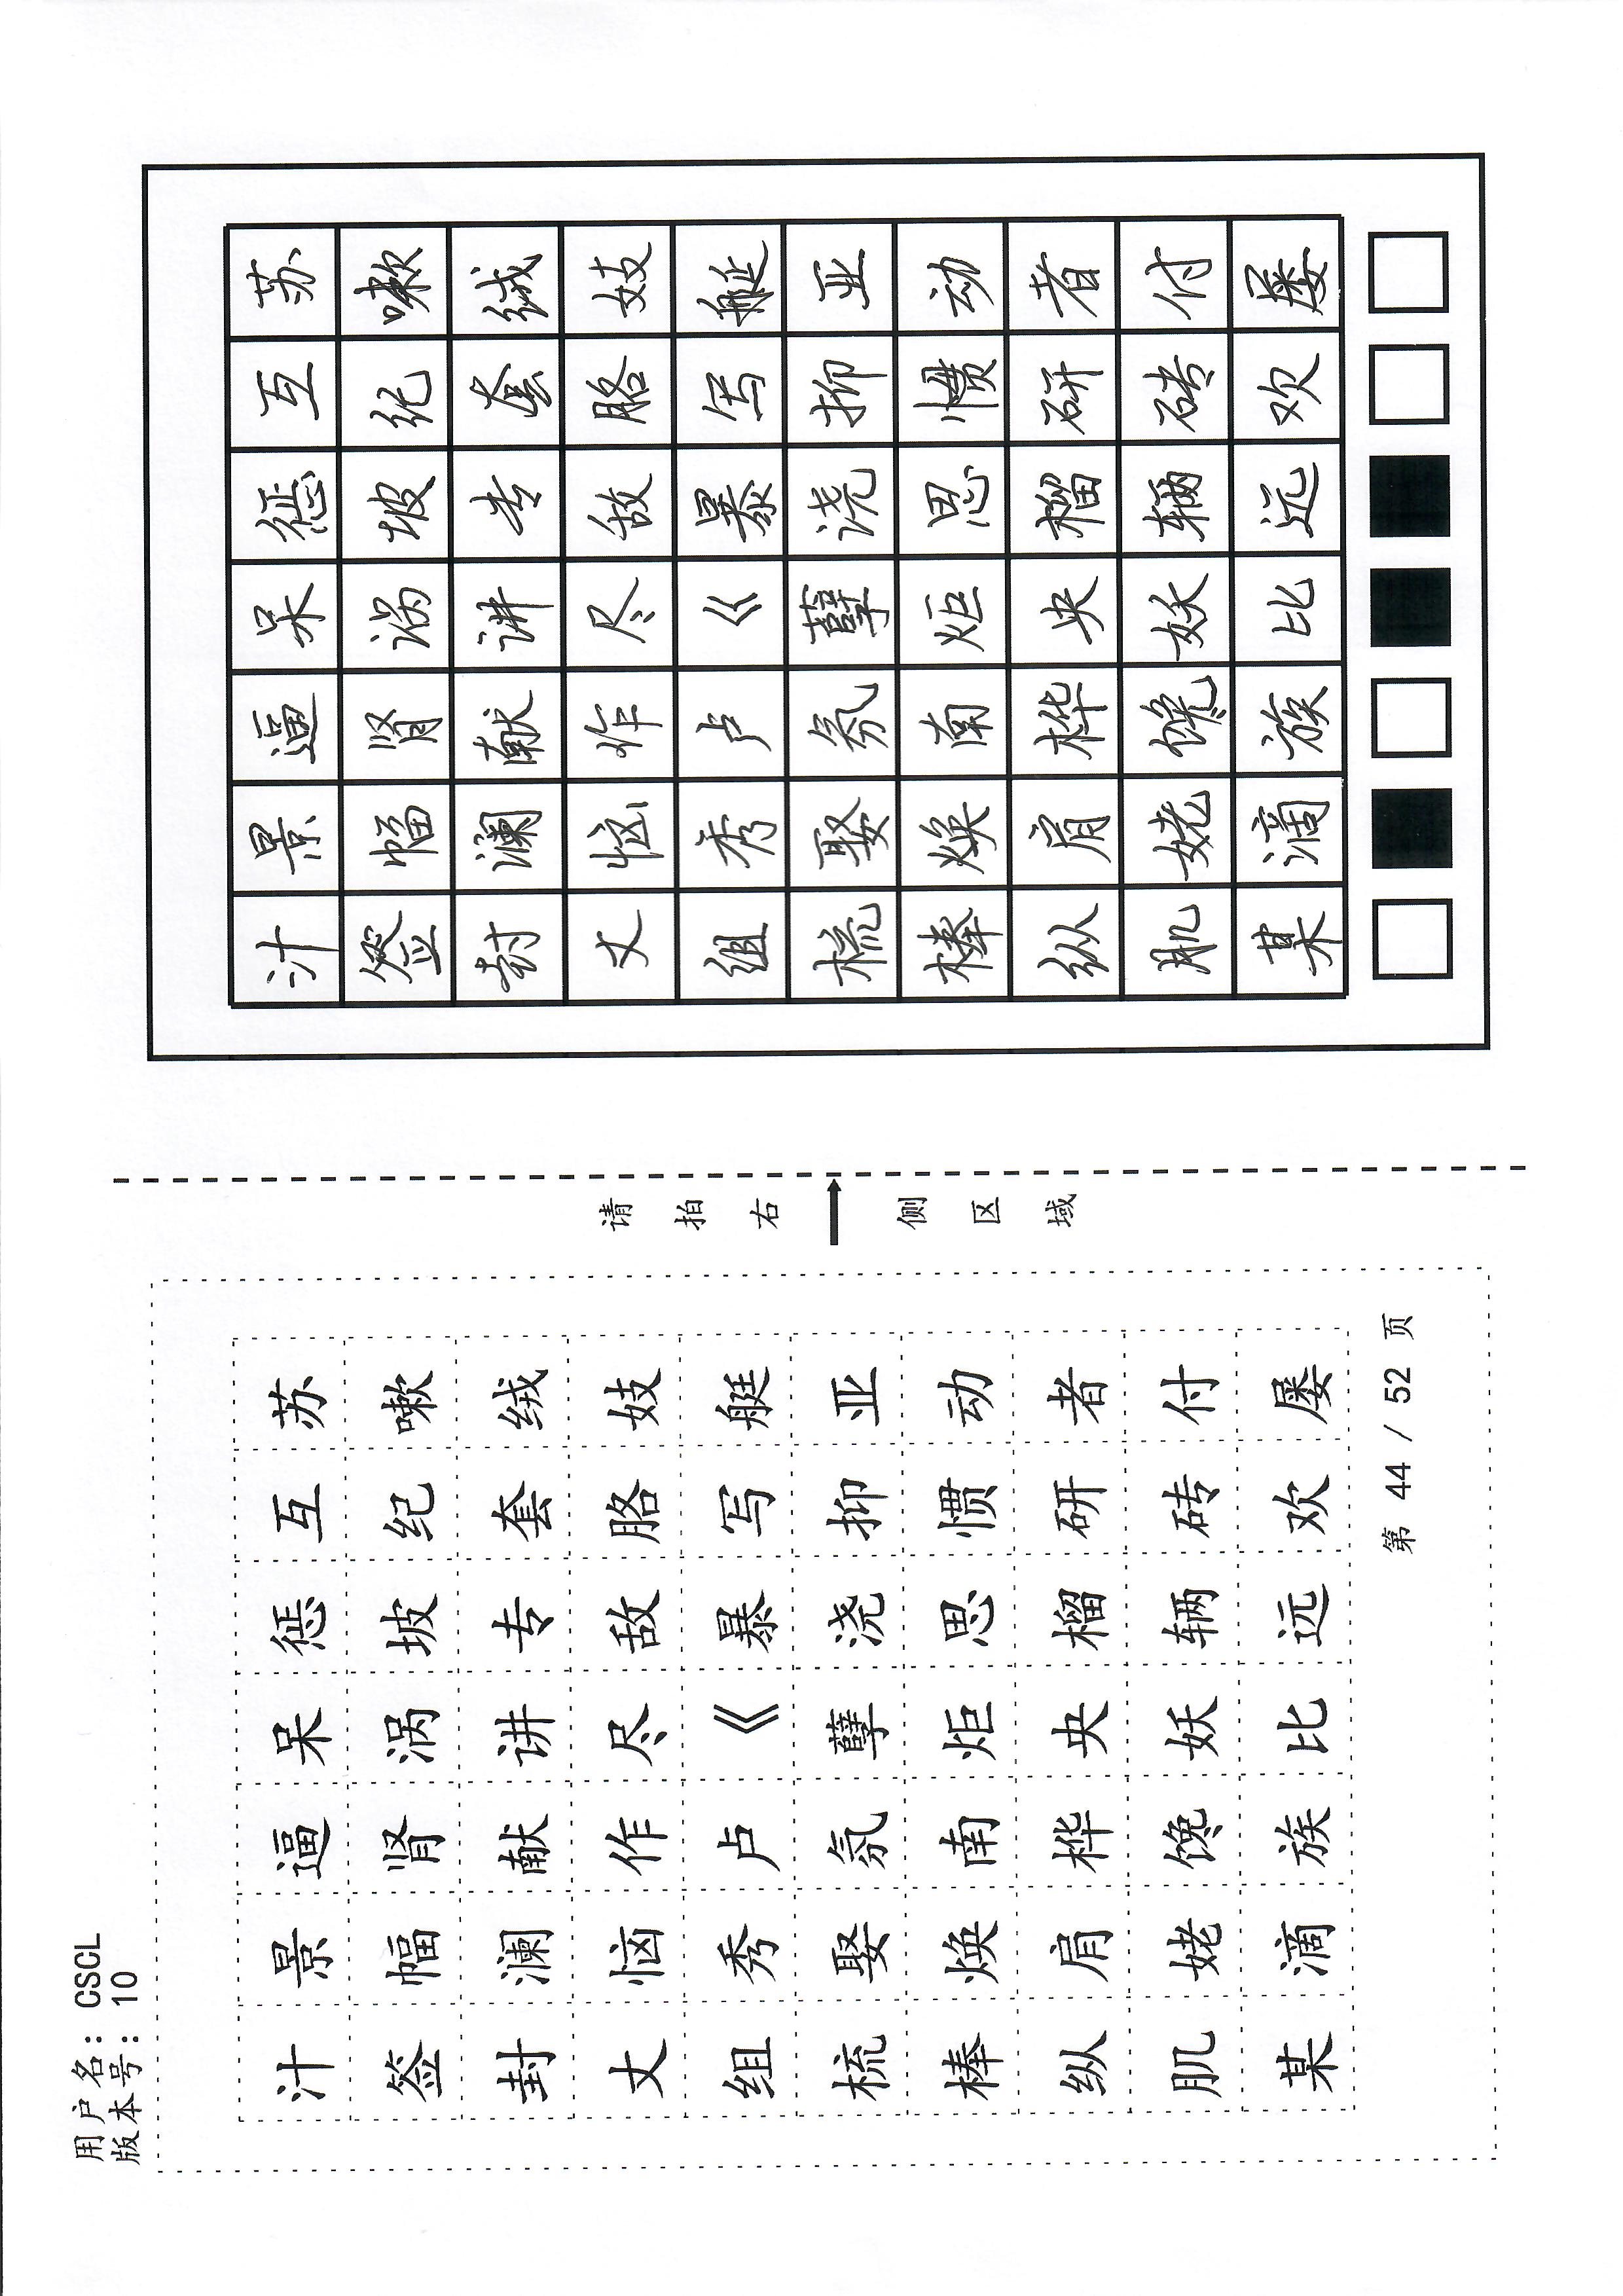 用户名：CSCL
版本号：10
汁景逼呆惩互苏
签幅肾涡坡纪嗽
封澜献讲专套绒
丈恼作尽敌胳妓
组秀卢《暴写艇
梳娶氛孽浇抑亚
棒焕南炬思惯动
纵肩桦央榴研者
肌姥馋妖辆砖付
某滴族比远欢屡
第 44 / 52 页
请拍右→侧区域
汁景逼呆惩互苏
签幅肾涡坡纪嗽
封澜献讲专套绒
丈恼作尽敌胳妓
组秀卢《暴写艇
梳娶氛孽浇抑亚
棒焕南炬思惯动
纵肩桦央榴研者
肌姥馋妖辆砖付
某滴族比远欢屡